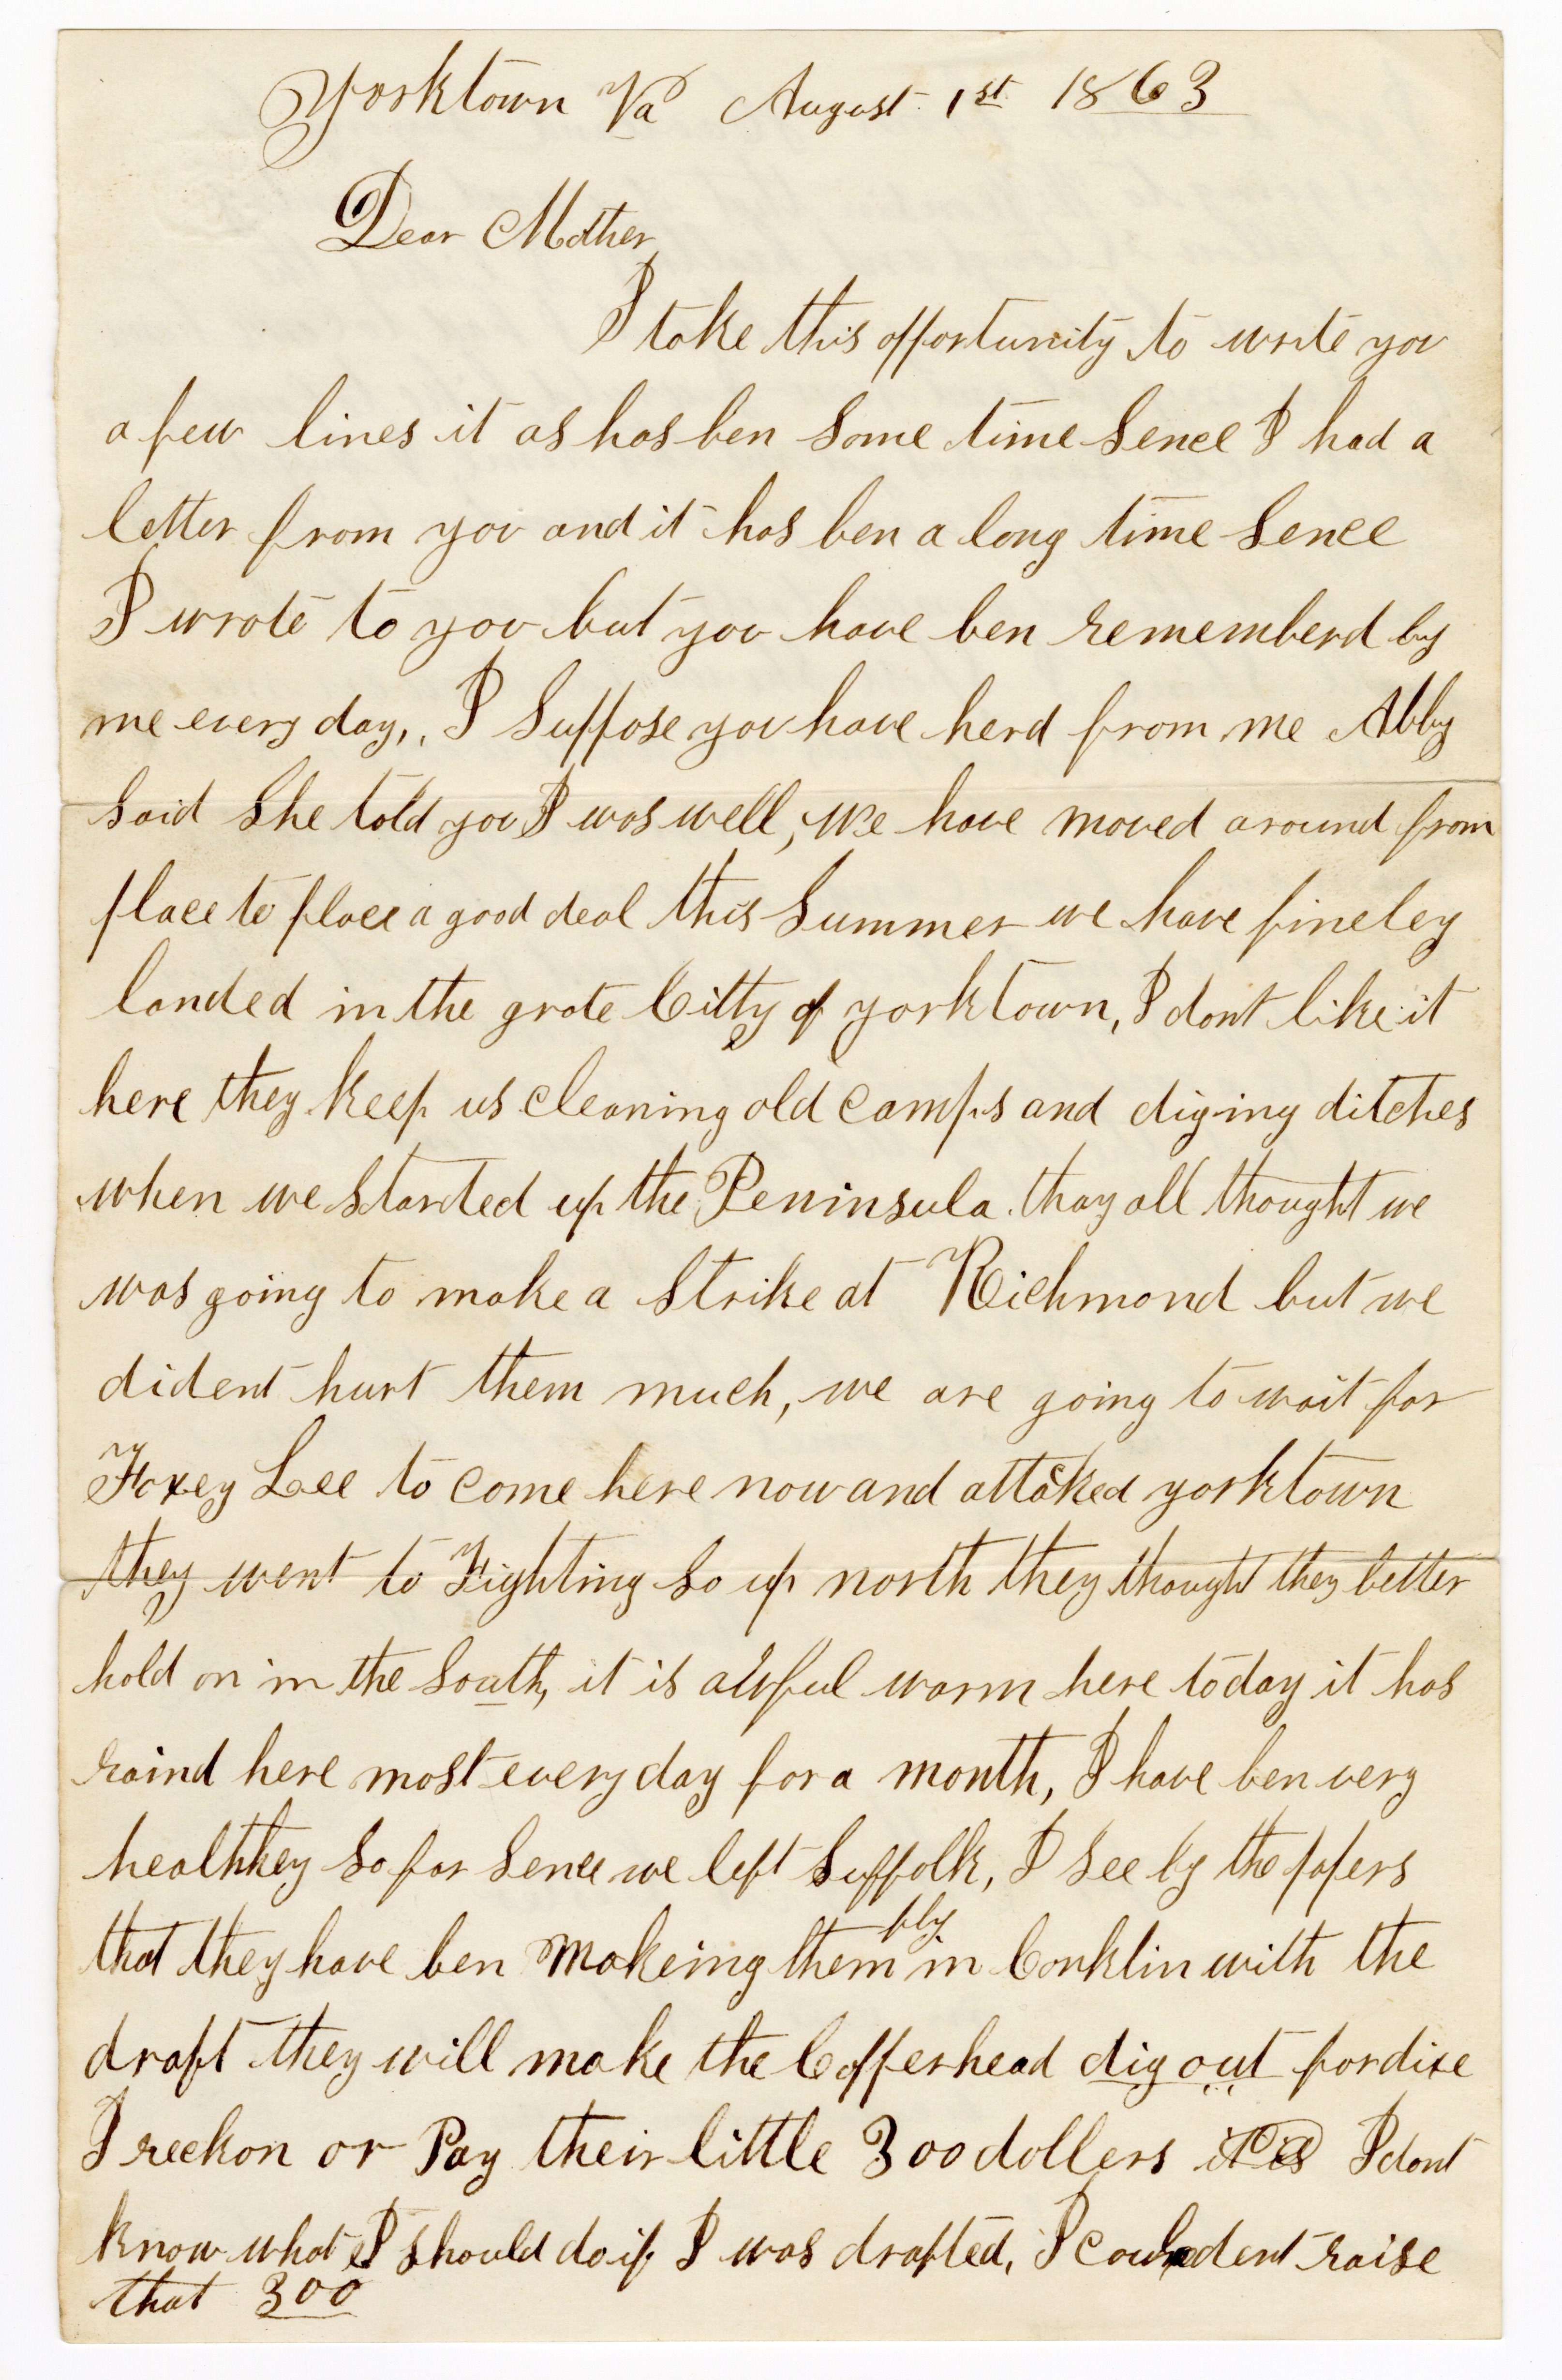 Yorktown Va August 1st 1863
Dear Mother
I take this opportunity to write you
a few lines it as has ben some time sence I had a
letter from you and it has ben a long time sence
I wrote to you but you have ben rememberd by
me every day,, I suppose you have herd from me Abby
said she told you I was well, we have moved around from
place to place a good deal this summer we have fineley
landed in the grate Citty of yorktown, I dont like it
here they keep us cleaning old camps and diging ditches
when we started up the Peninsula. thay all thought we
was going to make a strike at Richmond but we
dident hurt them much, we are going to wait for
Foxey Lee to come here now and attacked yorktown
they went to Fighting so up north they thought they better
hold on in the south, it is awful warm here today it has
raind here most every day for a month, I have ben very
healthkey so far sence we left Suffolk, I see by the papers
that they have ben makeing them fly in Conklin with the
draft they will make the Copperhead dig out for dixe
I reckon or Pay their little 300 dollers it is I dont
know what I should do if I was drafted, I couldent raise
that 300